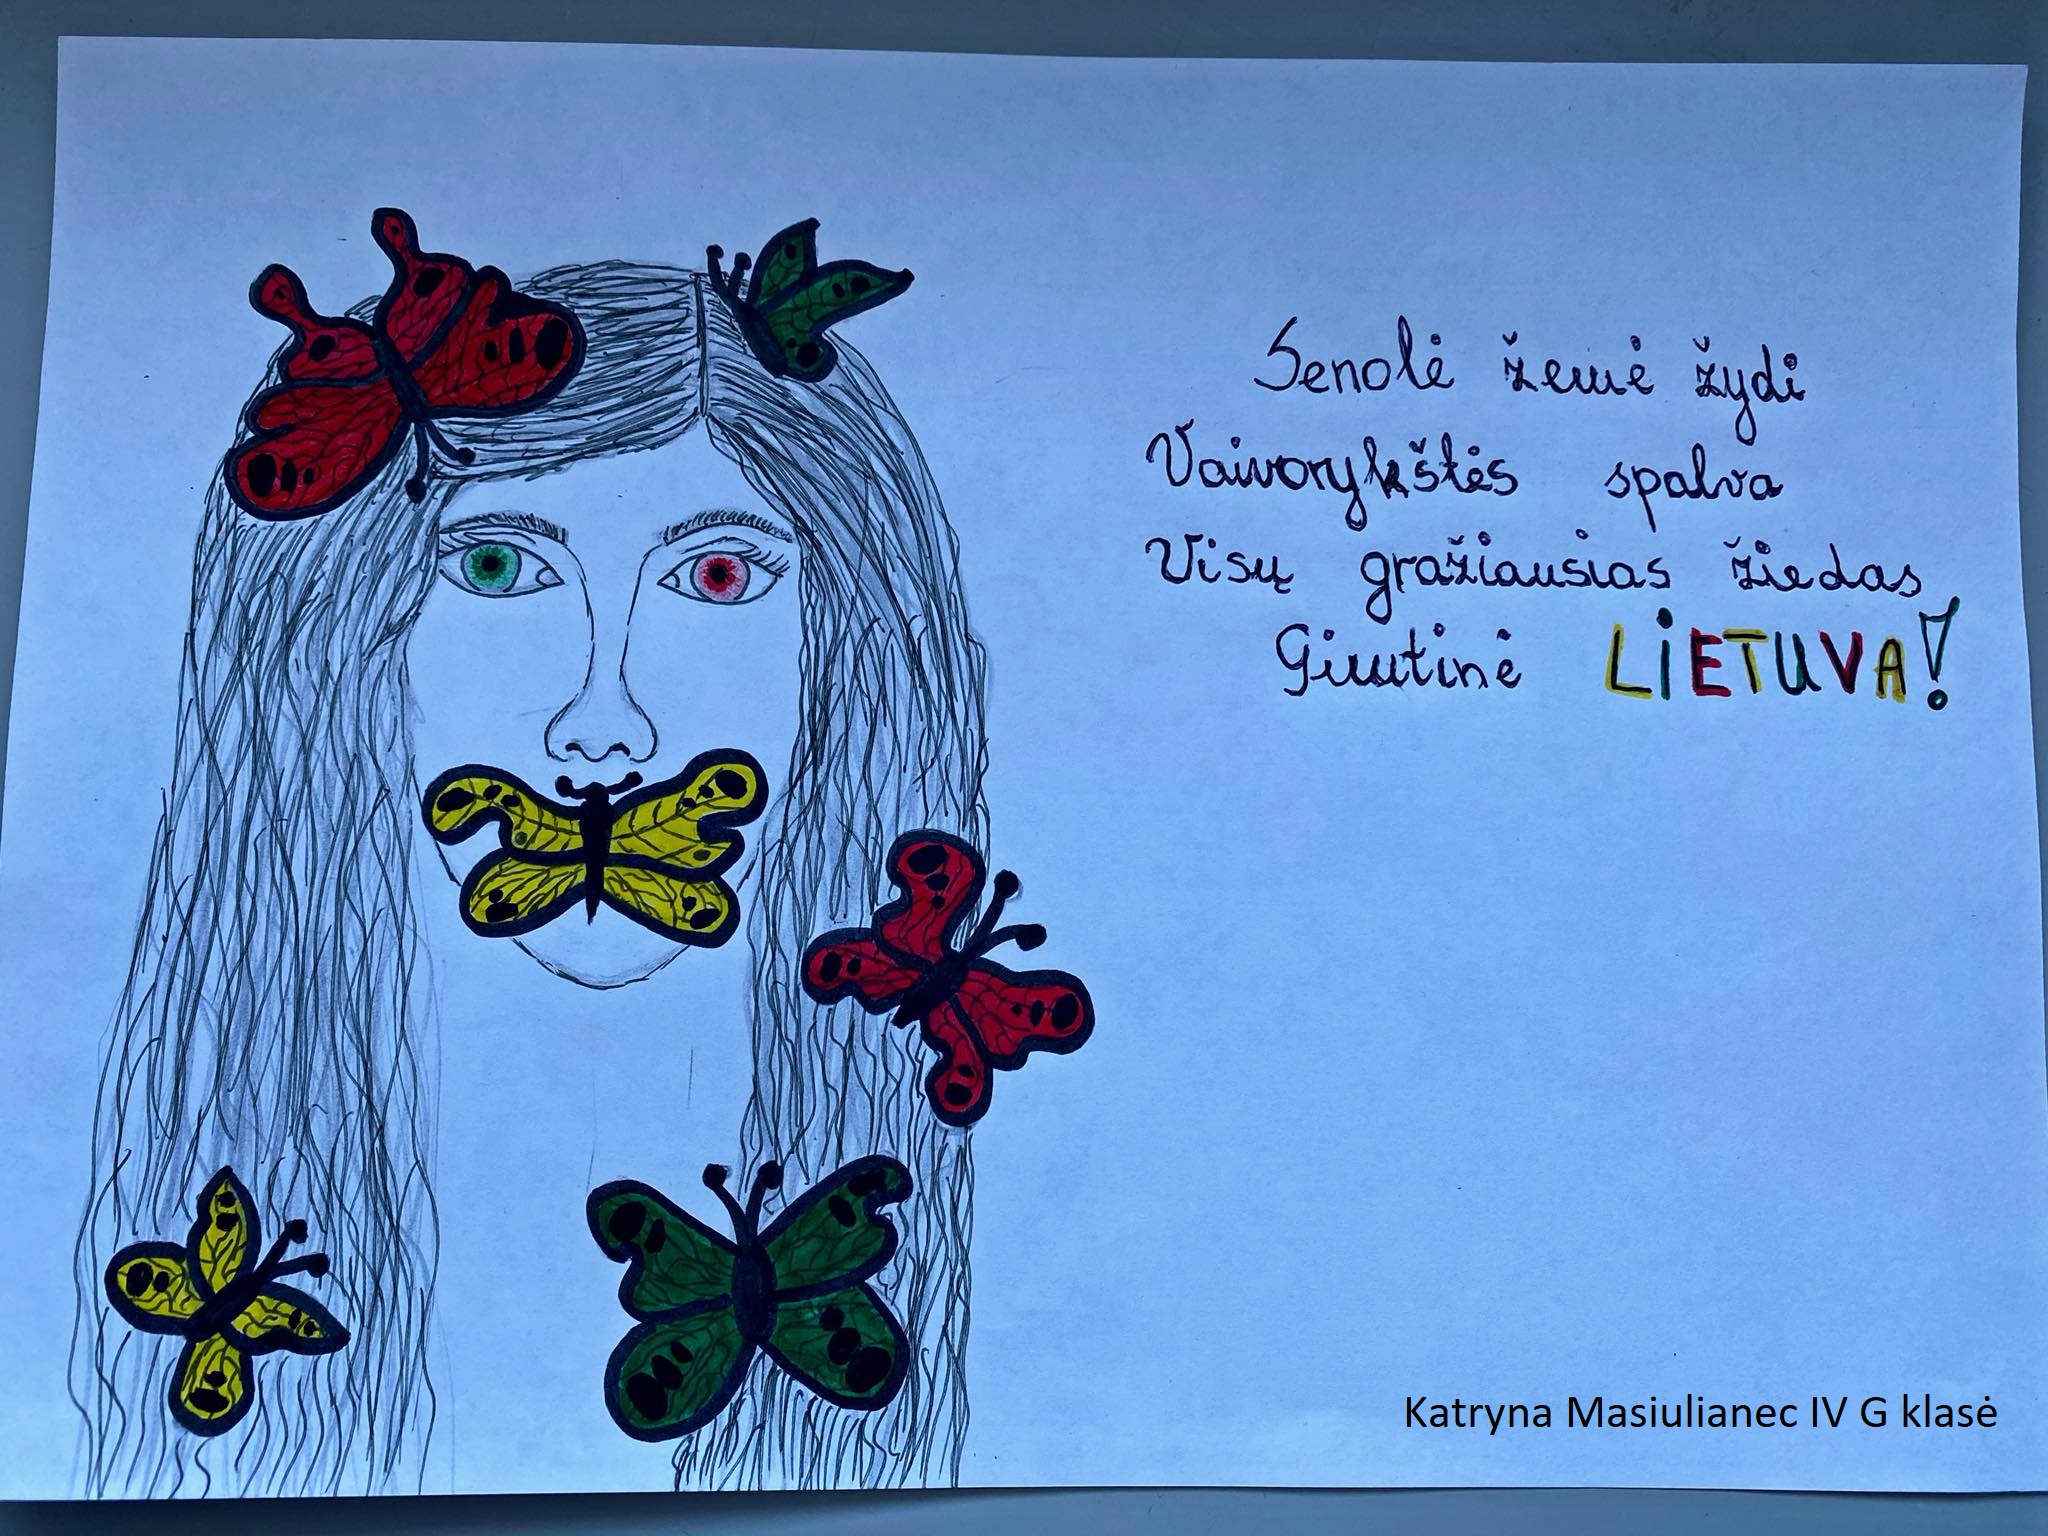 Senolė žemė žydi
Vaivorykštės spalva
Visų gražiausias žiedas
Gimtinė LIETUVA!
Katryna Masiulianec IV G klasė